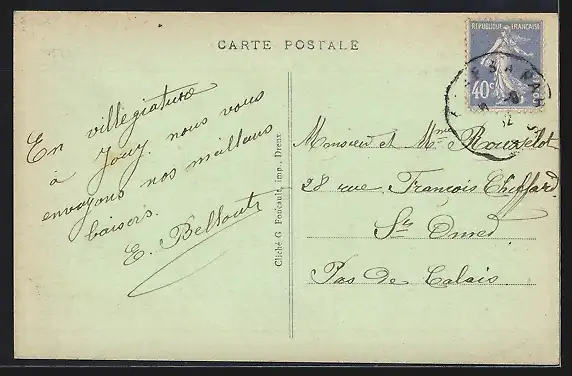 CARTE POSTALE
RÉPUBLIQUE FRANÇAISE
40c
En villégiature
à Jouy nous vous
envoyons nos meilleurs
baisers.
E.
Cliché G. Foucault, imp., Dreux
Monsieur et Mme Rouzelot
28 rue François Chiffard
St Omer
Pas de Calais